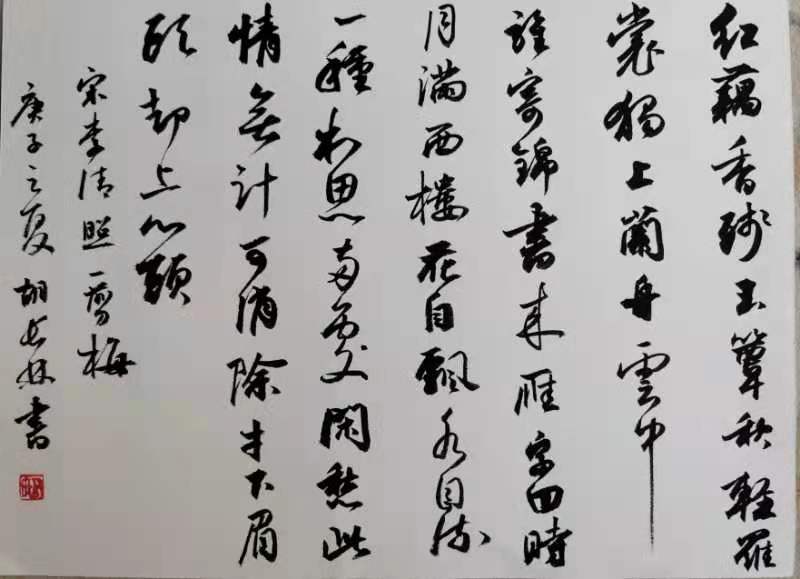 红藕香残玉簟秋輕羅
裳獨上蘭舟雲中
誰寄錦書来雁字回時
月满西樓花自飄水自流
一種相思兩處閑愁此
情無計可消除才下眉
頭却上心頭
宋李清照一剪梅
庚子之夏胡長書